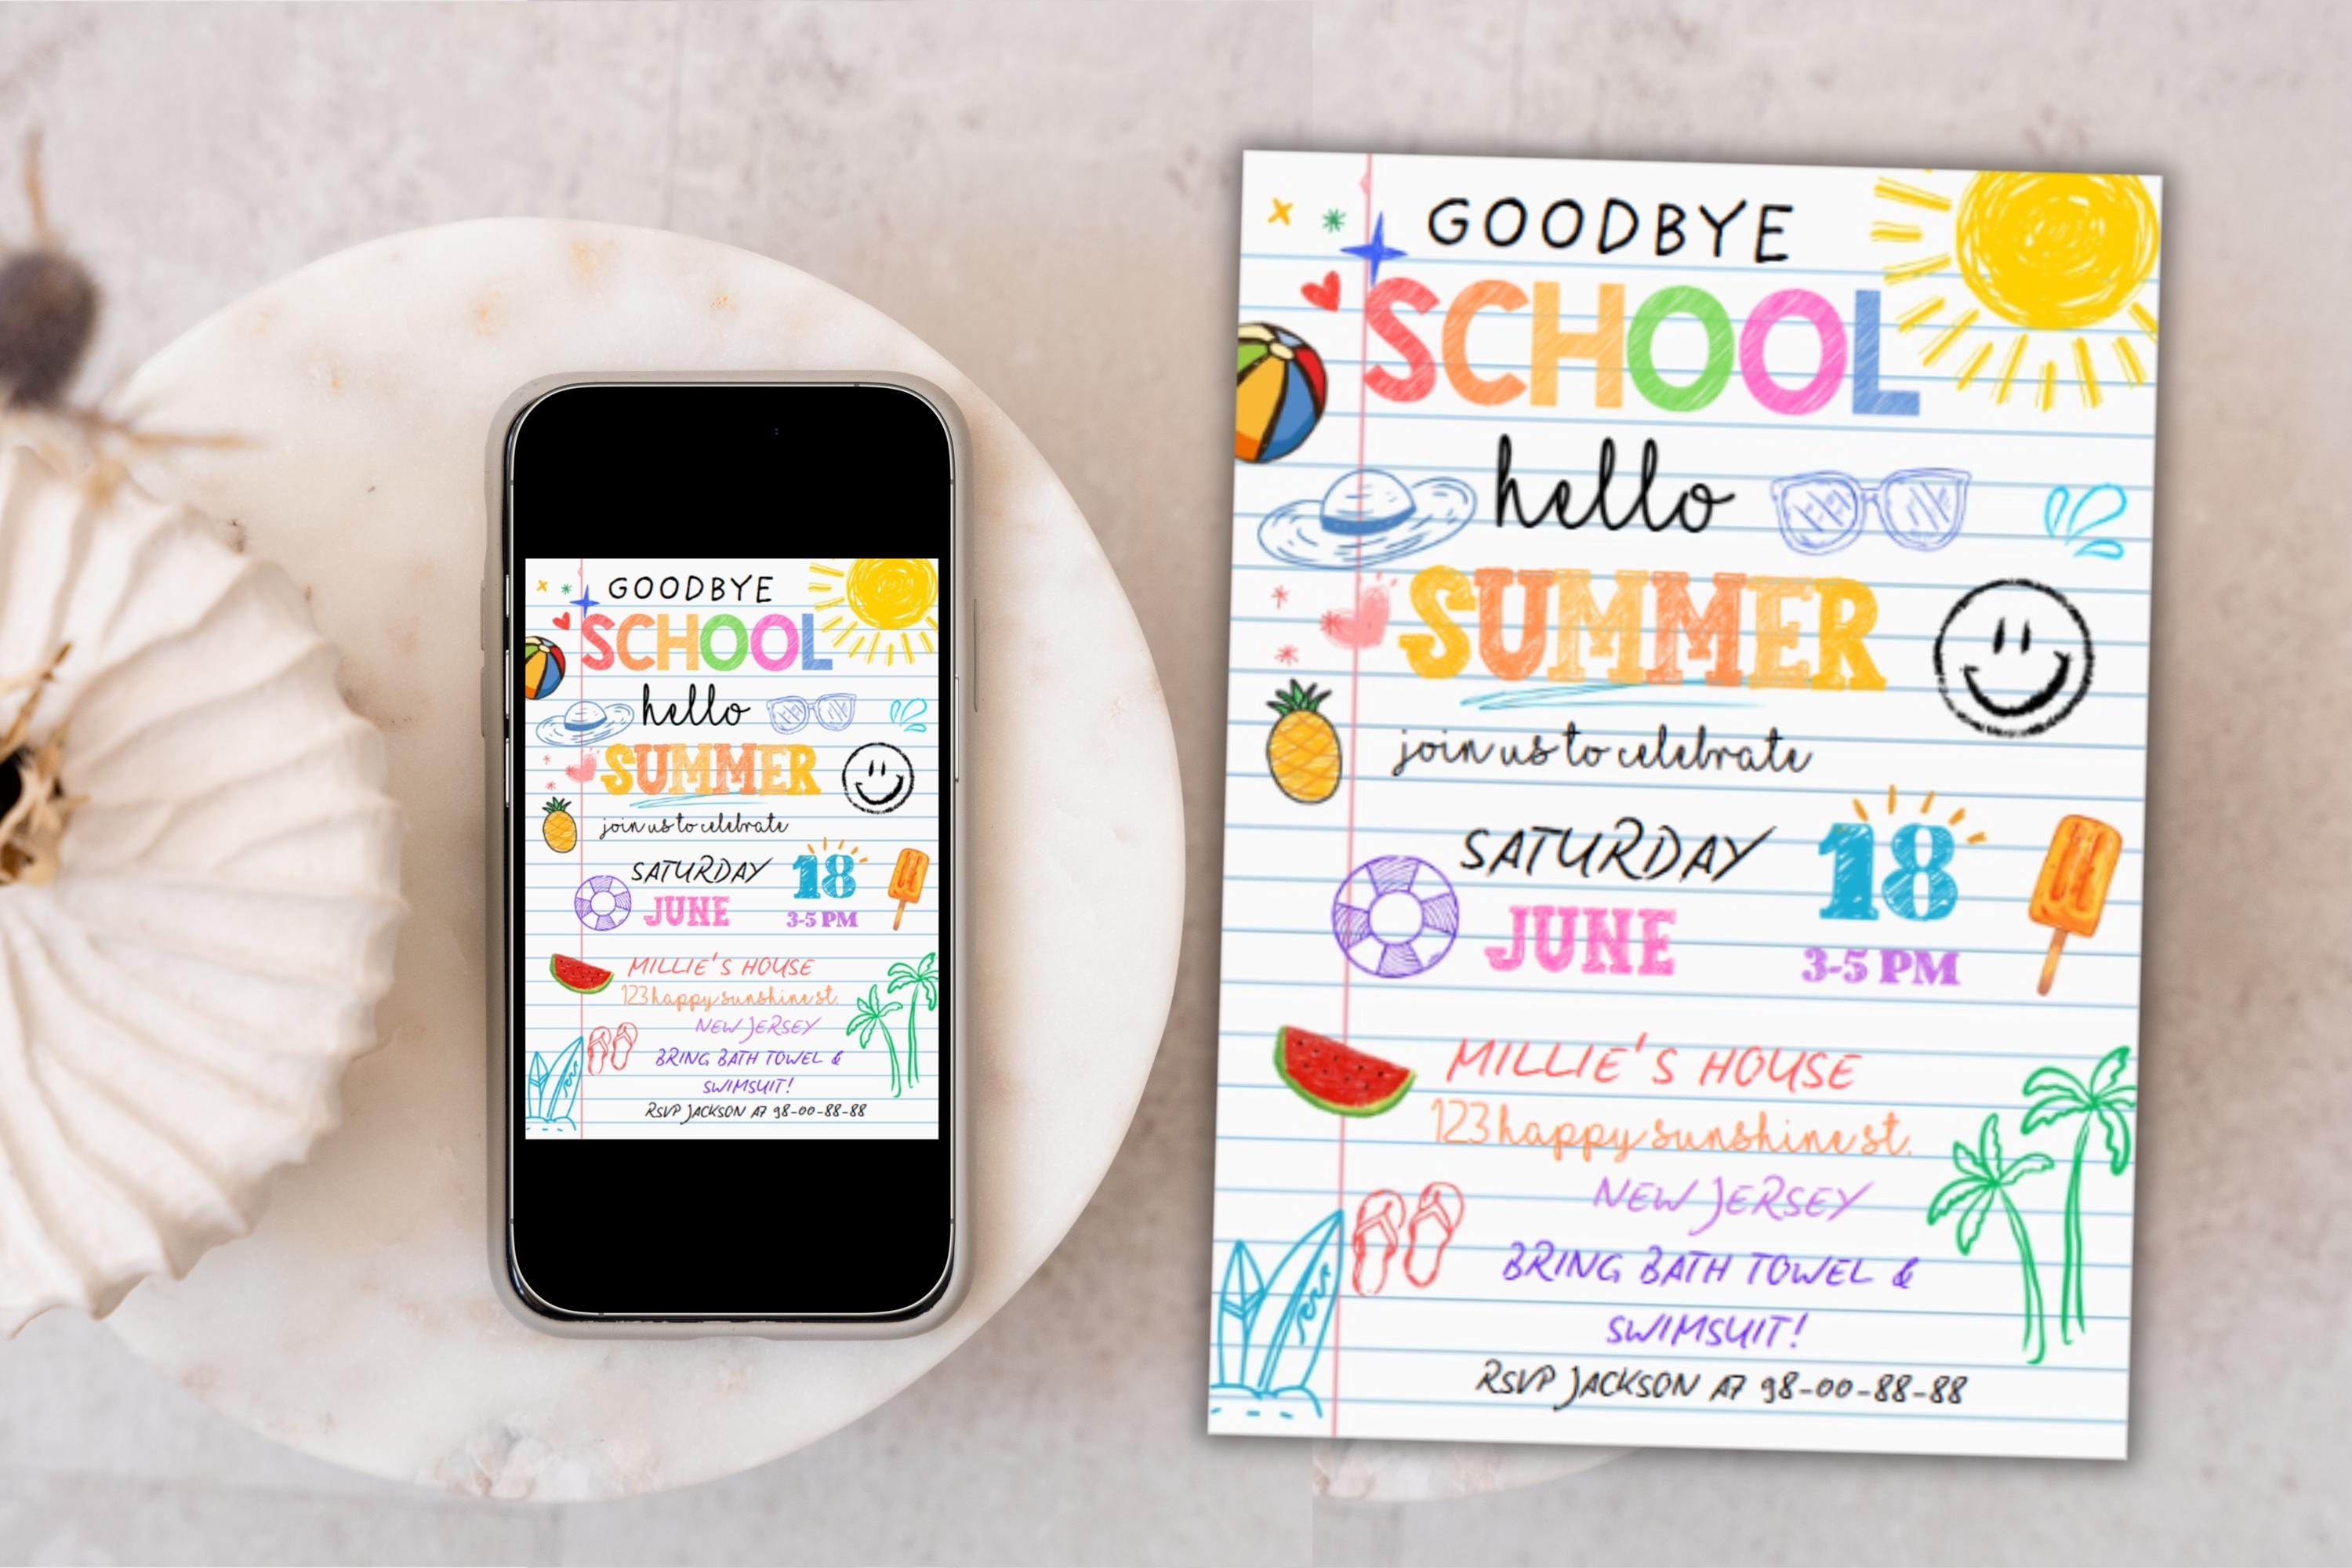 GOODBYE
SCHOOL
hello
SUMMER
join us to celebrate
SATURDAY 18
JUNE 3-5 PM
MILLIE'S HOUSE
123 happy sunshine st.
NEW JERSEY
BRING BATH TOWEL &
SWIMSUIT!
RSVP JACKSON AT 98-00-88-88
GOODBYE
SCHOOL
hello
SUMMER
join us to celebrate
SATURDAY 18
JUNE 3-5 PM
MILLIE'S HOUSE
123 happy sunshine st.
NEW JERSEY
BRING BATH TOWEL &
SWIMSUIT!
RSVP JACKSON AT 98-00-88-88